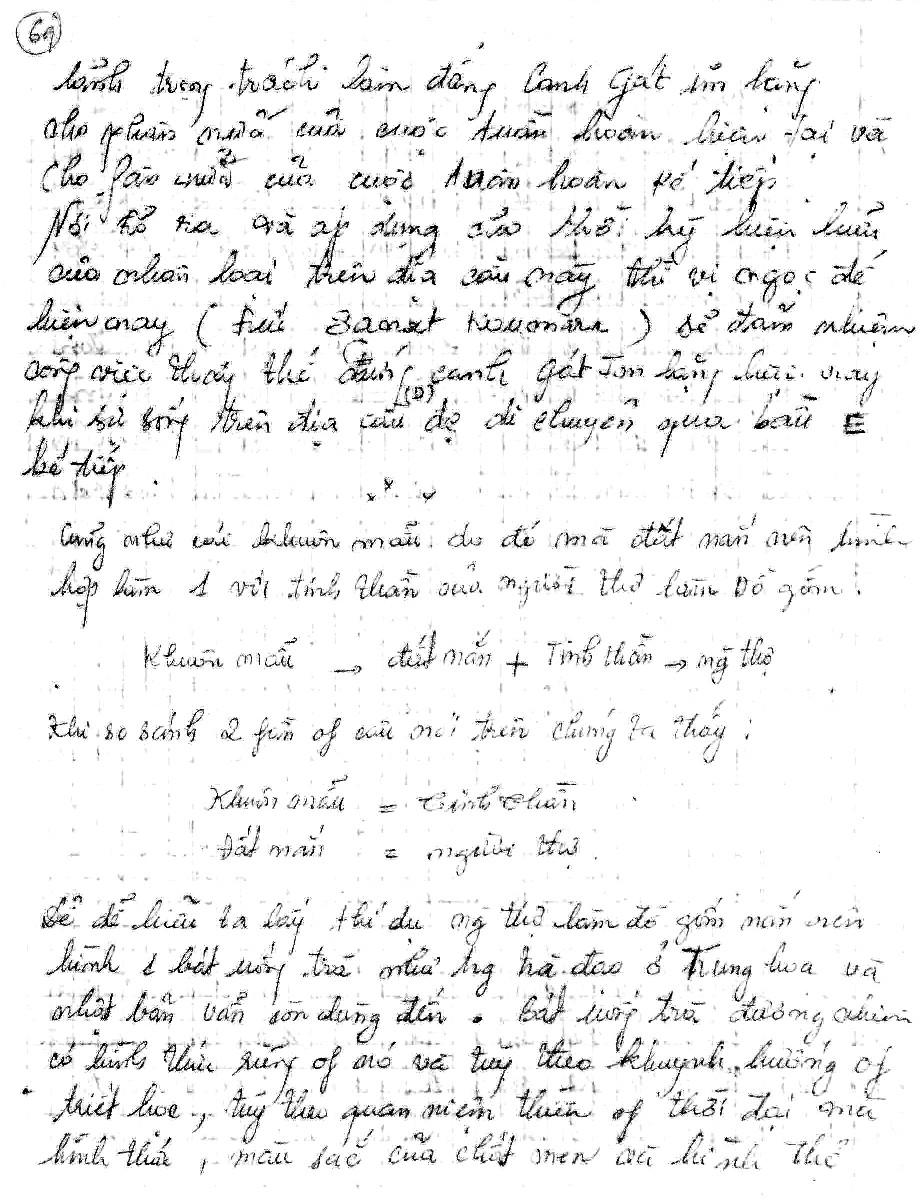 69
lảnh trọng trách làm đấng Canh Gát im lặng
cho phần nữa của cuộc tuần hoàn hiện tại và
cho fần nữa của cuộc tuần hoàn kế tiếp
Nói rỏ ra và áp dụng cho thời kỳ hiện hữu
của nhân loại trên địa cầu này thì vị ngọc đế
hiện nay ( Đức Sanat Koumara ) sẽ đãm nhiệm
công việc thay thế đấng canh gát im lặng hiện nay
khi sự sống trên địa cầu (D) di chuyển qua bầu E
kế tiếp
x x x
Cũng như cái khuôn mẫu do đó mà đất nắn nên hình
hợp làm 1 với tinh thần của người thợ làm Đồ gốm.
Khuôn mẫu → đất nắn + Tinh thần → ng thợ
Khi so sánh 2 fần of câu nói trên chúng ta thấy :
Khuôn mẫu = Tinh thần
Đất nắn = người thợ
Để dể hiểu ta lấy thí dụ ng thợ làm đồ gốm nắn nên
hình 1 bát uống trà như ng trà đạo ở Trung hoa và
nhật bản vẫn còn dùng đến. Bát uống trà đương nhiên
có hình thức riêng of nó và tùy theo khuynh hướng of
triết học, tùy theo quan niệm of thời đại mà
hình thức, màu sắc của chất men và hình thể